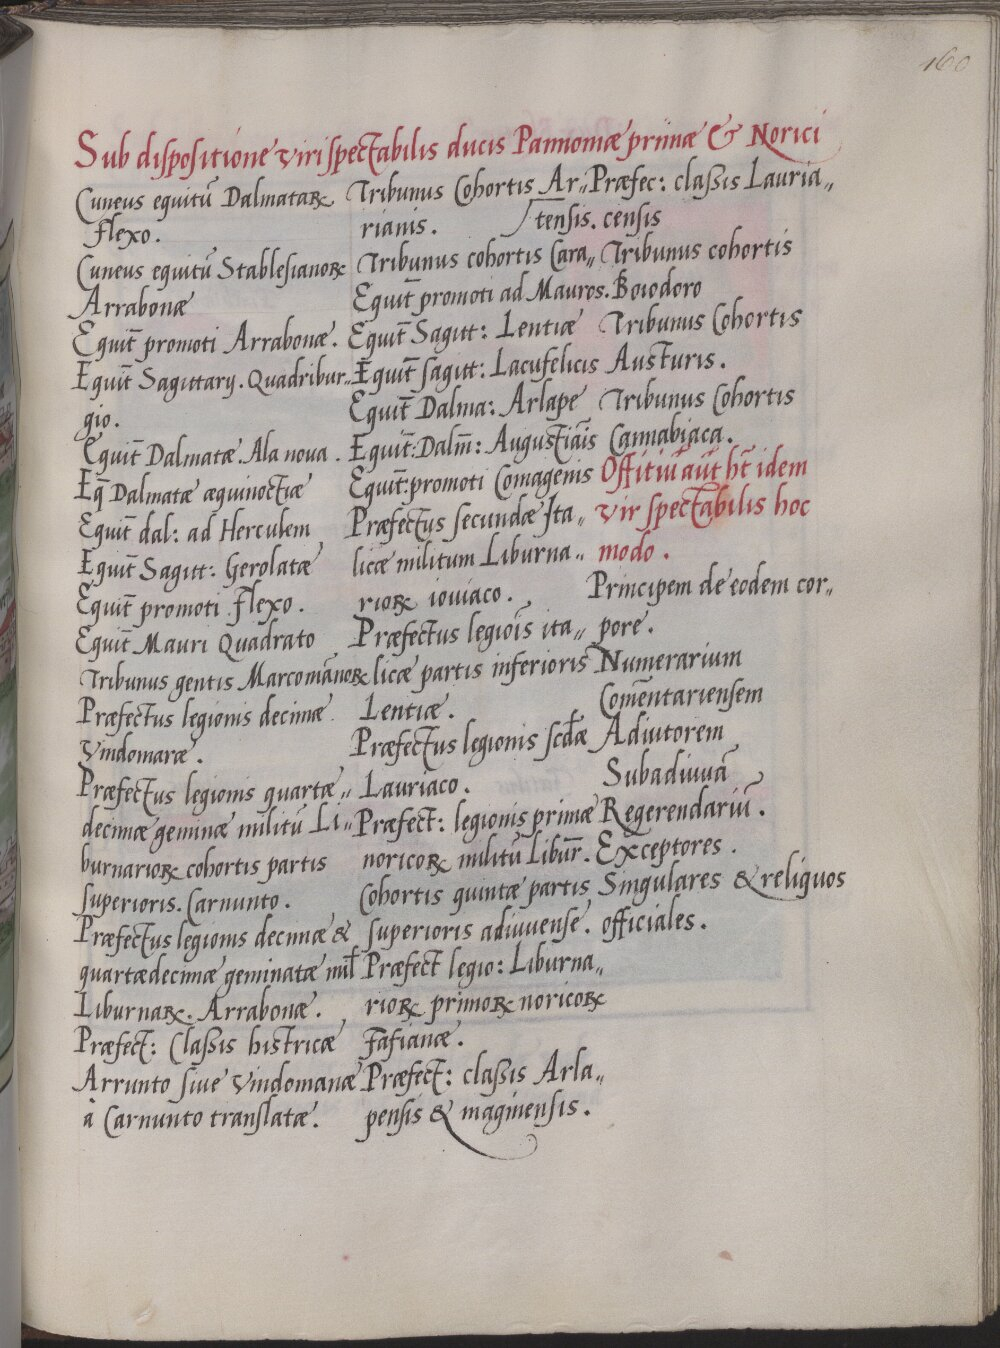 160
Sub dispositione viri spectabilis ducis Pannoniæ primæ & Norici
Cuneus equitū Dalmataꝝ
Flexo.
Cuneus equitū Stablesianoꝝ
Arrabonæ
Equit̄ promoti Arrabonæ.
Equit̄ Sagittarij. Quadribur„
gio.
Equit̄ Dalmatæ. Ala nova.
Eq̄ Dalmatæ æquinoctiæ
Equit̄ dal: ad Herculem
Equit̄ Sagitt: Gerolatæ
Equit̄ promoti Flexo.
Equit̄ Mauri Quadrato
Tribunus gentis Marcomānoꝝ
Præfectus legionis decimæ
Vindomaræ.
Præfectus legionis quartæ„
decimæ geminæ militū Li„
burnarioꝝ cohortis partis
superioris. Carnunto.
Præfectus legionis decimæ &
quartædecimæ geminatæ mil̄
Liburnaꝝ. Arrabonæ.
Præfect: Classis histricæ
Arrunto sive Vindomanæ
à Carnunto translatæ.
Tribunus Cohortis Ar„
rianis. tensis.
Tribunus cohortis Cara„
Equit̄ promoti ad Mauros.
Equit̄ Sagitt: Lentiæ
Equit̄ sagitt: Lacufelicis
Equit̄ Dalma: Arlape
Equit̄: Dalm̄: Augustiāis
Equit̄: promoti Comagenis
Præfectus secundæ Ita„
licæ militum Liburna„
rioꝝ ioviaco.
Præfectus legiōis ita„
licæ partis inferioris
Lentiæ.
Præfectus legionis scd̄æ
Lauriaco.
Præfect: legionis primæ
noricoꝝ militū Libur̄.
Cohortis quintæ partis
superioris adiuvense.
Præfect legio: Liburna„
rioꝝ primoꝝ noricoꝝ
Fafianæ.
Præfect: classis Arla„
pensis & maginensis.
Præfec: classis Lauria„
censis
Tribunus cohortis
Boiodoro
Tribunus Cohortis
Austuris.
Tribunus Cohortis
Cannabiaca.
Offitiū aūt ht̄ idem
vir spectabilis hoc
modo.
Principem de eodem cor„
pore.
Numerarium
Comēntariensem
Adiutorem
Subadiuvā
Regerendariū.
Exceptores.
Singulares & reliquos
officiales.